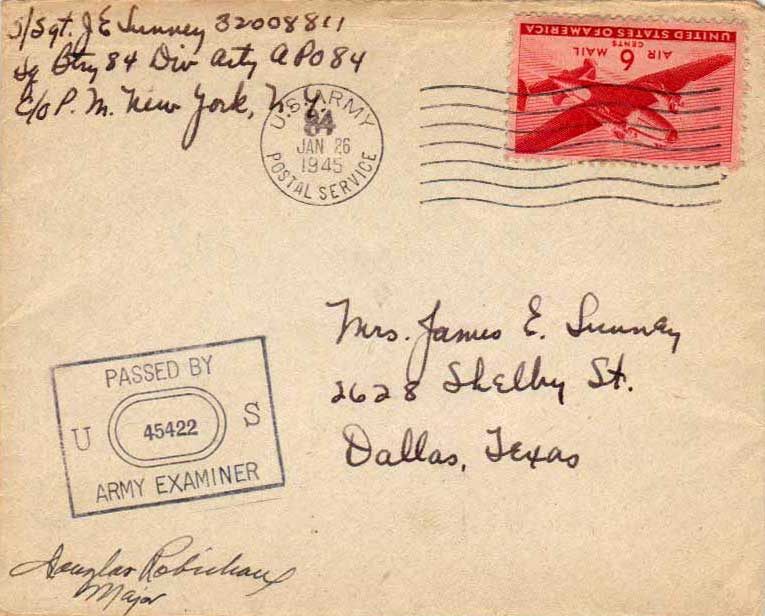 S/Sgt. J E Sunney 32008811
Hq Btry 84 Div Arty APO 84
C/o P. M. New York, N.Y.
U.S. ARMY
84
JAN 26
1945
POSTAL SERVICE
UNITED STATES OF AMERICA
6 CENTS
AIR MAIL
Mrs. James E. Sunney
2628 Shelby St.
Dallas, Texas
PASSED BY
U 45422 S
ARMY EXAMINER
Douglas Robichaux
Major